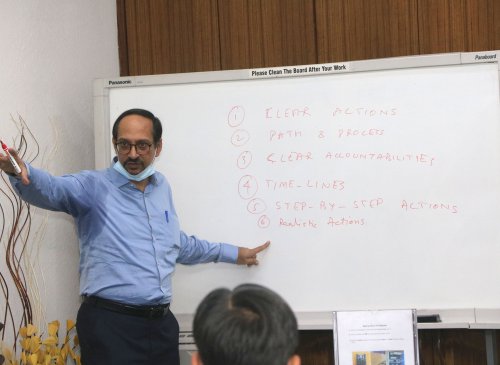 Please Clean The Board After Your Work
Panasonic
Panaboard
1 CLEAR ACTIONS
2 PATH & PROCESS
3 CLEAR ACCOUNTABILITIES
4 TIME-LINES
5 STEP-BY-STEP ACTIONS
6 Realistic Actions